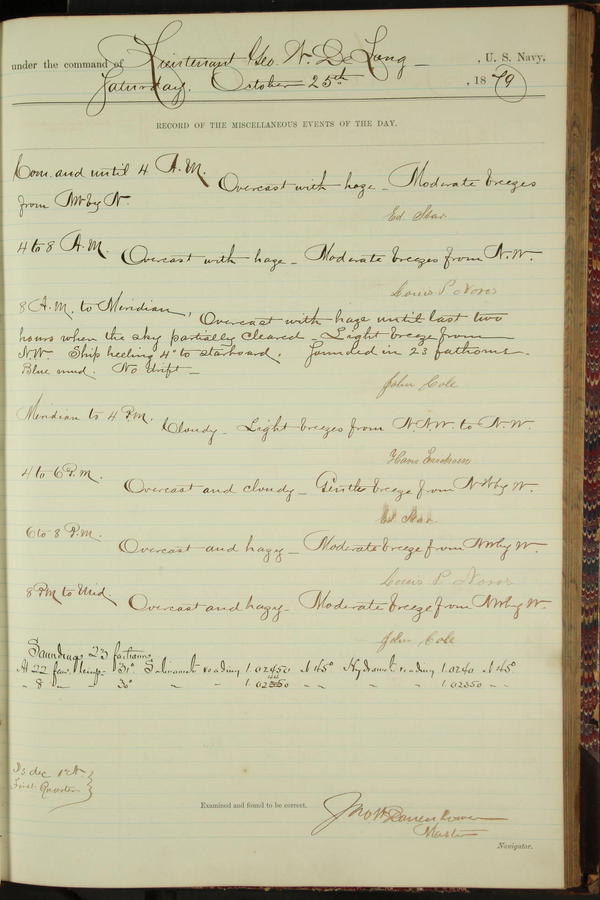 under the command of Lieutenant Geo. W. De Long, U. S. Navy,
Saturday, October 25th, 1879
RECORD OF THE MISCELLANEOUS EVENTS OF THE DAY.
Com. and until 4 A.M. Overcast with haze - Moderate breezes
from NW by N.
Ed Star
4 to 8 A.M. Overcast with haze - Moderate breezes from N.W.
Louis P. Noros
8 A.M. to Meridian, Overcast with haze until last two
hours when the sky partially cleared. Light breeze from
N.W. Ship heeling 4° to starboard. Sounded in 23 fathoms.
Blue mud. No drift -
John Cole
Meridian to 4 P.M. Cloudy - Light breezes from N.N.W. to N.W.
Hans Erichsen
4 to 6 P.M. Overcast and cloudy - Gentle breeze from NW by W.
Ed Star
6 to 8 P.M. Overcast and hazy - Moderate breeze from NW by W.
Louis P. Noros
8 PM to Mid. Overcast and hazy - Moderate breeze from NW by W.
John Cole
Sounding 23 fathoms
At 22 fms temp. 31° Salinometer reading 1.02450 At 45° Hydromet. reading 1.0240 At 45°
" 8 " " 30° " " " " " " 1.02350 " "
First Quarter
Examined and found to be correct.
Jno W Danenhower
Master
Navigator.